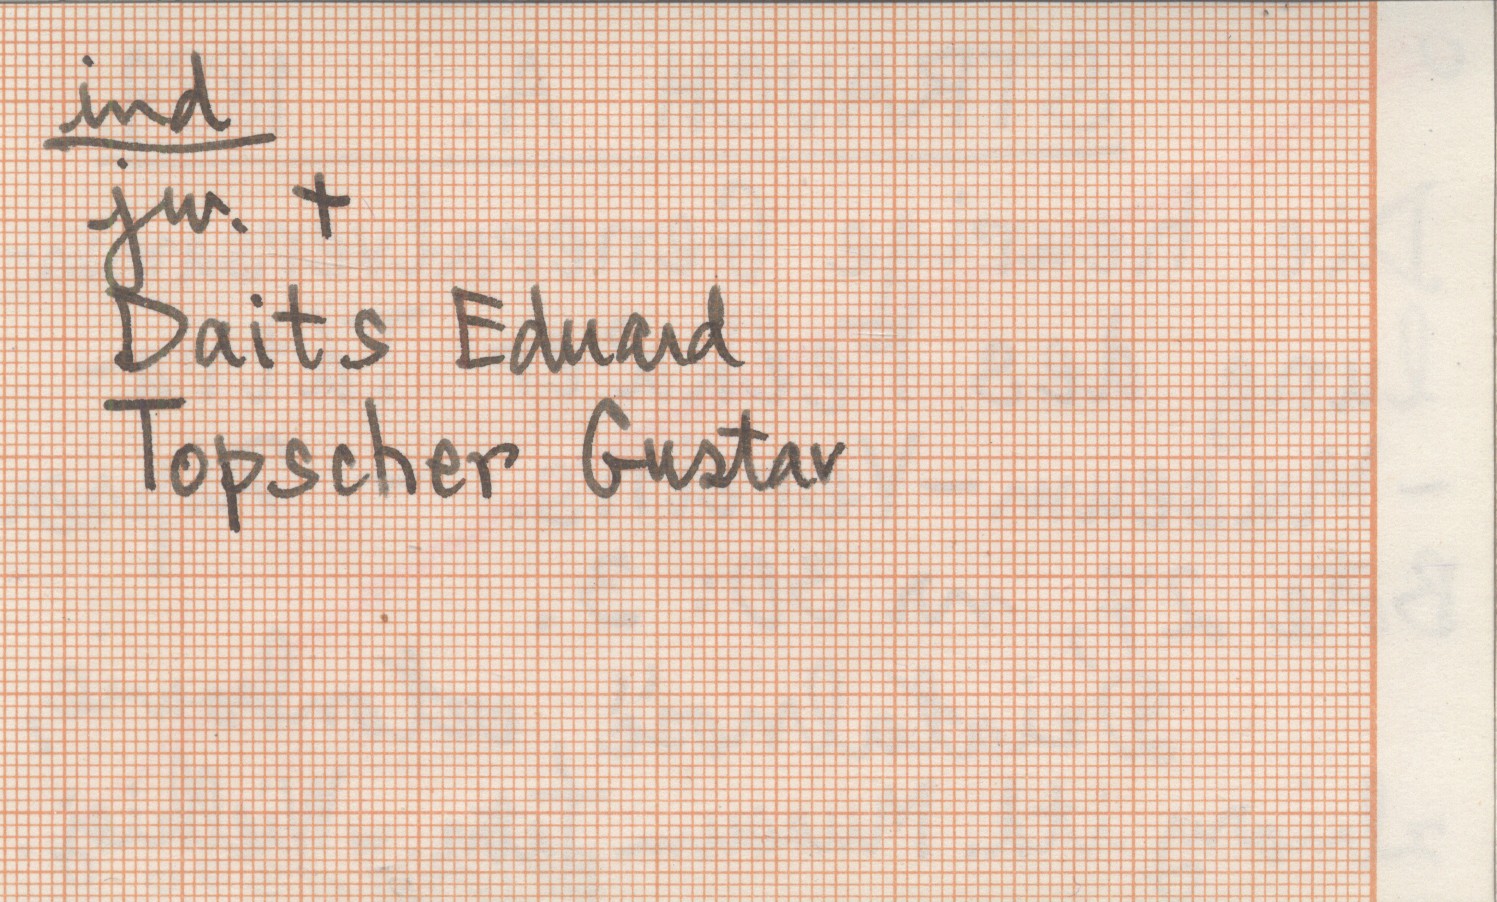 ind
jw. +
Daits Eduard
Topscher Gustav